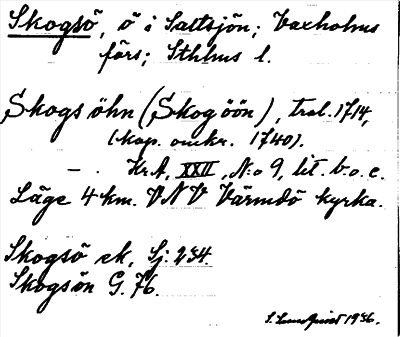 Skogsö, ö i Saltsjön; Vaxholms
förs; Sthlms l.
Skogs öhn (Skogöön), tral. 1714,
(kop. omkr. 1740).
— . Kr.A, XXII, N:o 9, lit. b. o. c.
Läge 4 km. VNV Värmdö kyrka.
Skogsö ek, Sj. 234.
Skogsön G. 76.
S. Lundquist 1936.